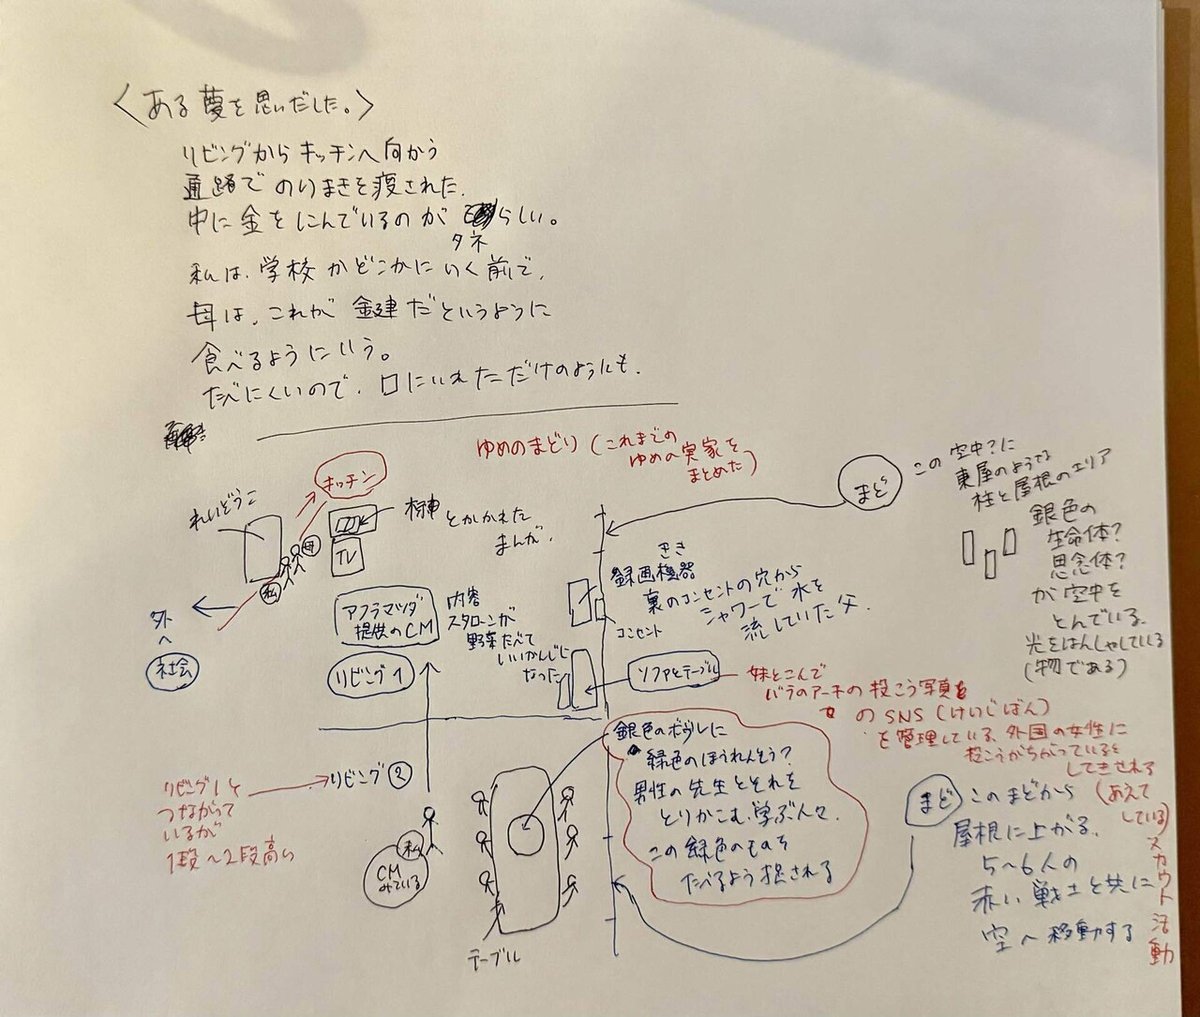 〈ある夢を思いだした。〉
リビングからキッチンへ向かう
通路でのりまきを渡された。
中に金をにんでいるのが らしい。
タネ
私は、学校かどこかにいく前で、
母は、これが鍵だというように
食べるようにいう。
たべにくいので、口にいれただけのようにも。
ゆめのまどり(これまでの
ゆめの実家を
まとめた)
キッチン
れいぞうこ
母
私
TV
とかかれた
まんが。
外へ
社会
アフラマツダ
提供のCM
内容
スタローンが
野菜たべて
いいかんじに
なった
リビング1
きき
録画機器
裏のコンセントの穴から
シャワーで水を
流していた父。
コンセント
ソファとテーブル
まど
この空中?に
東屋のような
柱と屋根のエリア
銀色の
生命体?
思念体?
が空中を
とんでいる。
光をはんしゃしている
(物である)
妹とこんで
バラのアーチの投こう写真を
のSNS(けいじばん)
を管理している。外国の女性に
投こうがちがっているを
してきされる
(あえて
している)
スカウト活動
リビング1と
つながって
いるが
1段〜2段高い
リビング②
私
CM
みている
テーブル
銀色のボウルに
緑色のほうれんそう?
男性の先生とそれを
とりかこむ、学ぶ人々。
この緑色のものを
たべるよう促される
まど
このまどから
屋根に上がる。
5〜6人の
赤い戦士と共に
空へ移動する